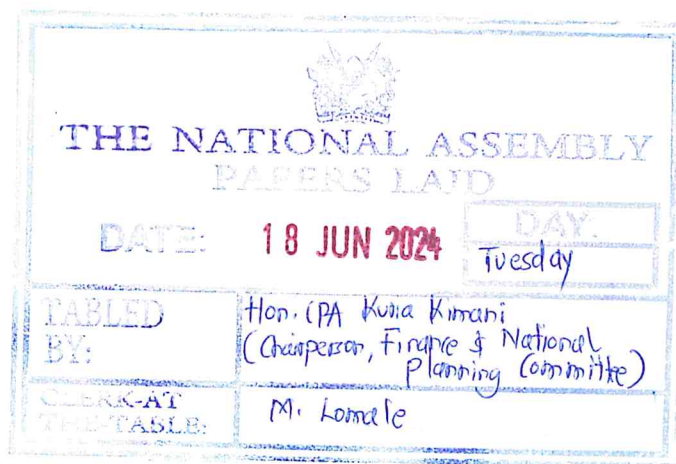 THE NATIONAL ASSEMBLY
PAPERS LAID
DATE: 18 JUN 2024
DAY:
Tuesday
TABLED BY:
Hon. CPA Kuria Kimani
(Chairperson, Finance & National
Planning Committee)
CLERK-AT
THE-TABLE:
M. Lomale